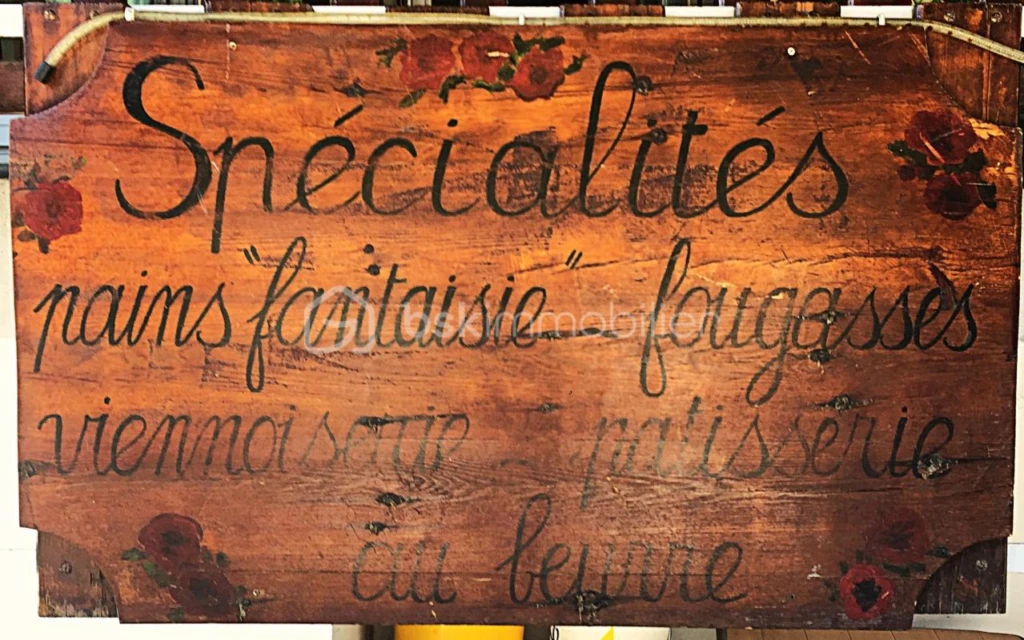 Spécialités
pains "fantaisie" - fougasses
bskimmobilier
viennoiserie - patisserie
au beurre